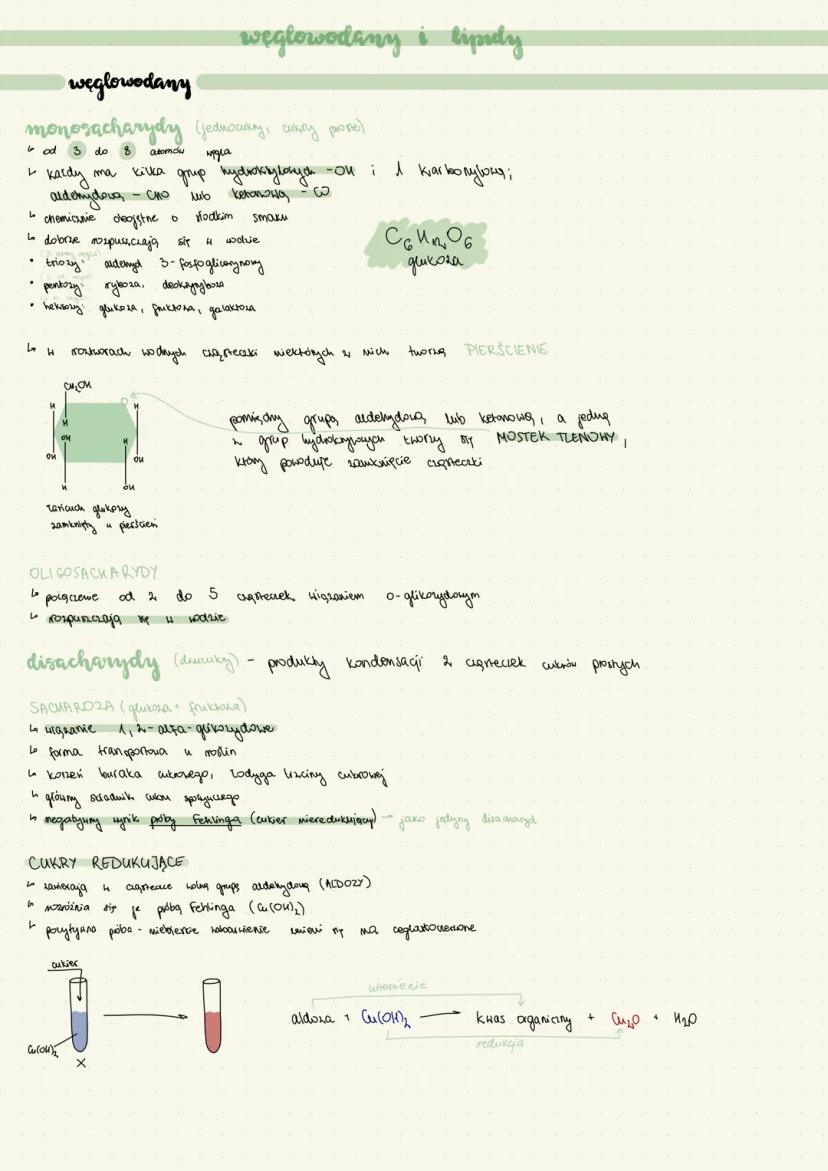 węglowodany i lipidy
węglowodany
monosacharydy (jednocukry, cukry proste)
↳ od 3 do 8 atomów węgla
↳ każdy ma kilka grup hydroksylowych -OH i 1 karbonylową;
aldehydową - CHO lub ketonową - CO
↳ chemicznie obojętne o słodkim smaku
↳ dobrze rozpuszczają się w wodzie
C₆H₁₂O₆
glukoza
• triozy: aldehyd 3-fosfoglicerynowy
• pentozy: ryboza, deoksyryboza
• heksozy: glukoza, fruktoza, galaktoza
↳ w roztworach wodnych cząsteczki niektórych z nich tworzą PIERŚCIENIE
CH₂OH
O
H
H
H
OH
H
OH
OH
H
OH
pomiędzy grupą aldehydową lub ketonową, a jedną
z grup hydroksylowych tworzy się MOSTEK TLENOWY,
który powoduje zamknięcie cząsteczki
łańcuch glukozy
zamknięty w pierścień
OLIGOSACHARYDY
↳ połączenie od 2 do 5 cząsteczek wiązaniem o-glikozydowym
↳ rozpuszczają się w wodzie
disacharydy (dwucukry) - produkty kondensacji 2 cząsteczek cukrów prostych
SACHAROZA (glukoza + fruktoza)
↳ wiązanie 1,2-alfa-glikozydowe
↳ forma transportowa u roślin
↳ korzeń buraka cukrowego, łodyga trzciny cukrowej
↳ główny składnik cukru spożywczego
↳ negatywny wynik próby Fehlinga (cukier nieredukujący) → jako jedyny disacharyd
CUKRY REDUKUJĄCE
↳ zawierają w cząsteczce wolną grupę aldehydową (ALDOZY)
↳ rozróżnia się je próbą Fehlinga (Cu(OH)₂)
↳ pozytywna próba - niebieskie zabarwienie zmieni się na ceglastoczerwone
cukier
Cu(OH)₂
utlenienie
aldoza + Cu(OH)₂ → kwas organiczny + Cu₂O + H₂O
redukcja